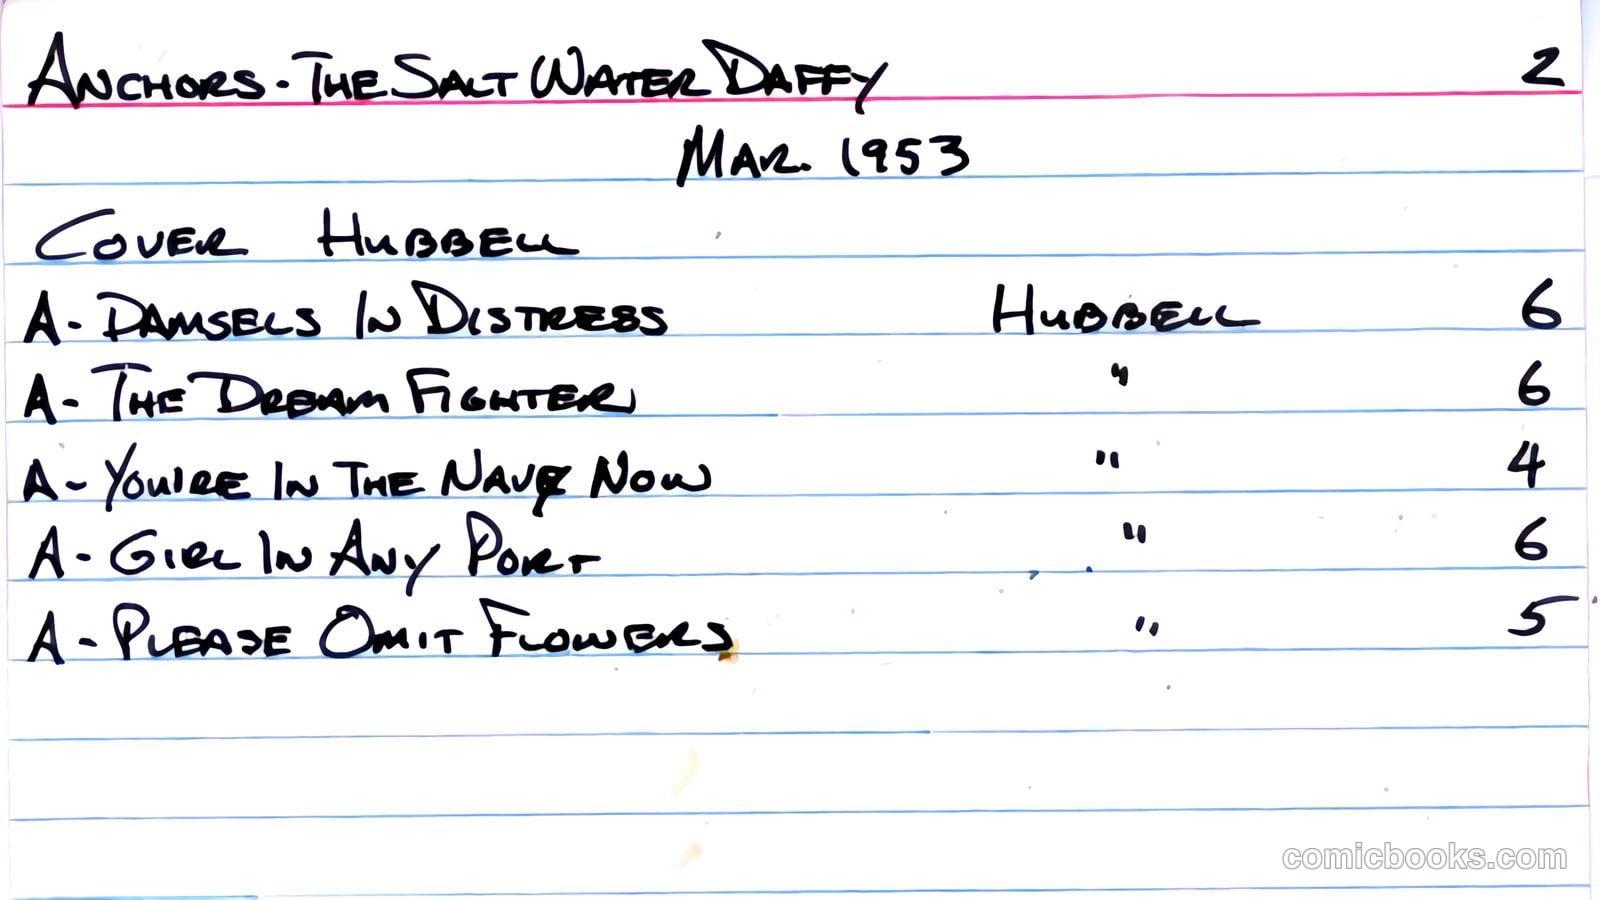 ANCHORS - THE SALT WATER DAFFY 2
MAR. 1953
COVER HUBBELL
A - DAMSELS IN DISTRESS HUBBELL 6
A - THE DREAM FIGHTER " 6
A - YOU'RE IN THE NAVY NOW " 4
A - GIRL IN ANY PORT " 6
A - PLEASE OMIT FLOWERS " 5
comicbooks.com